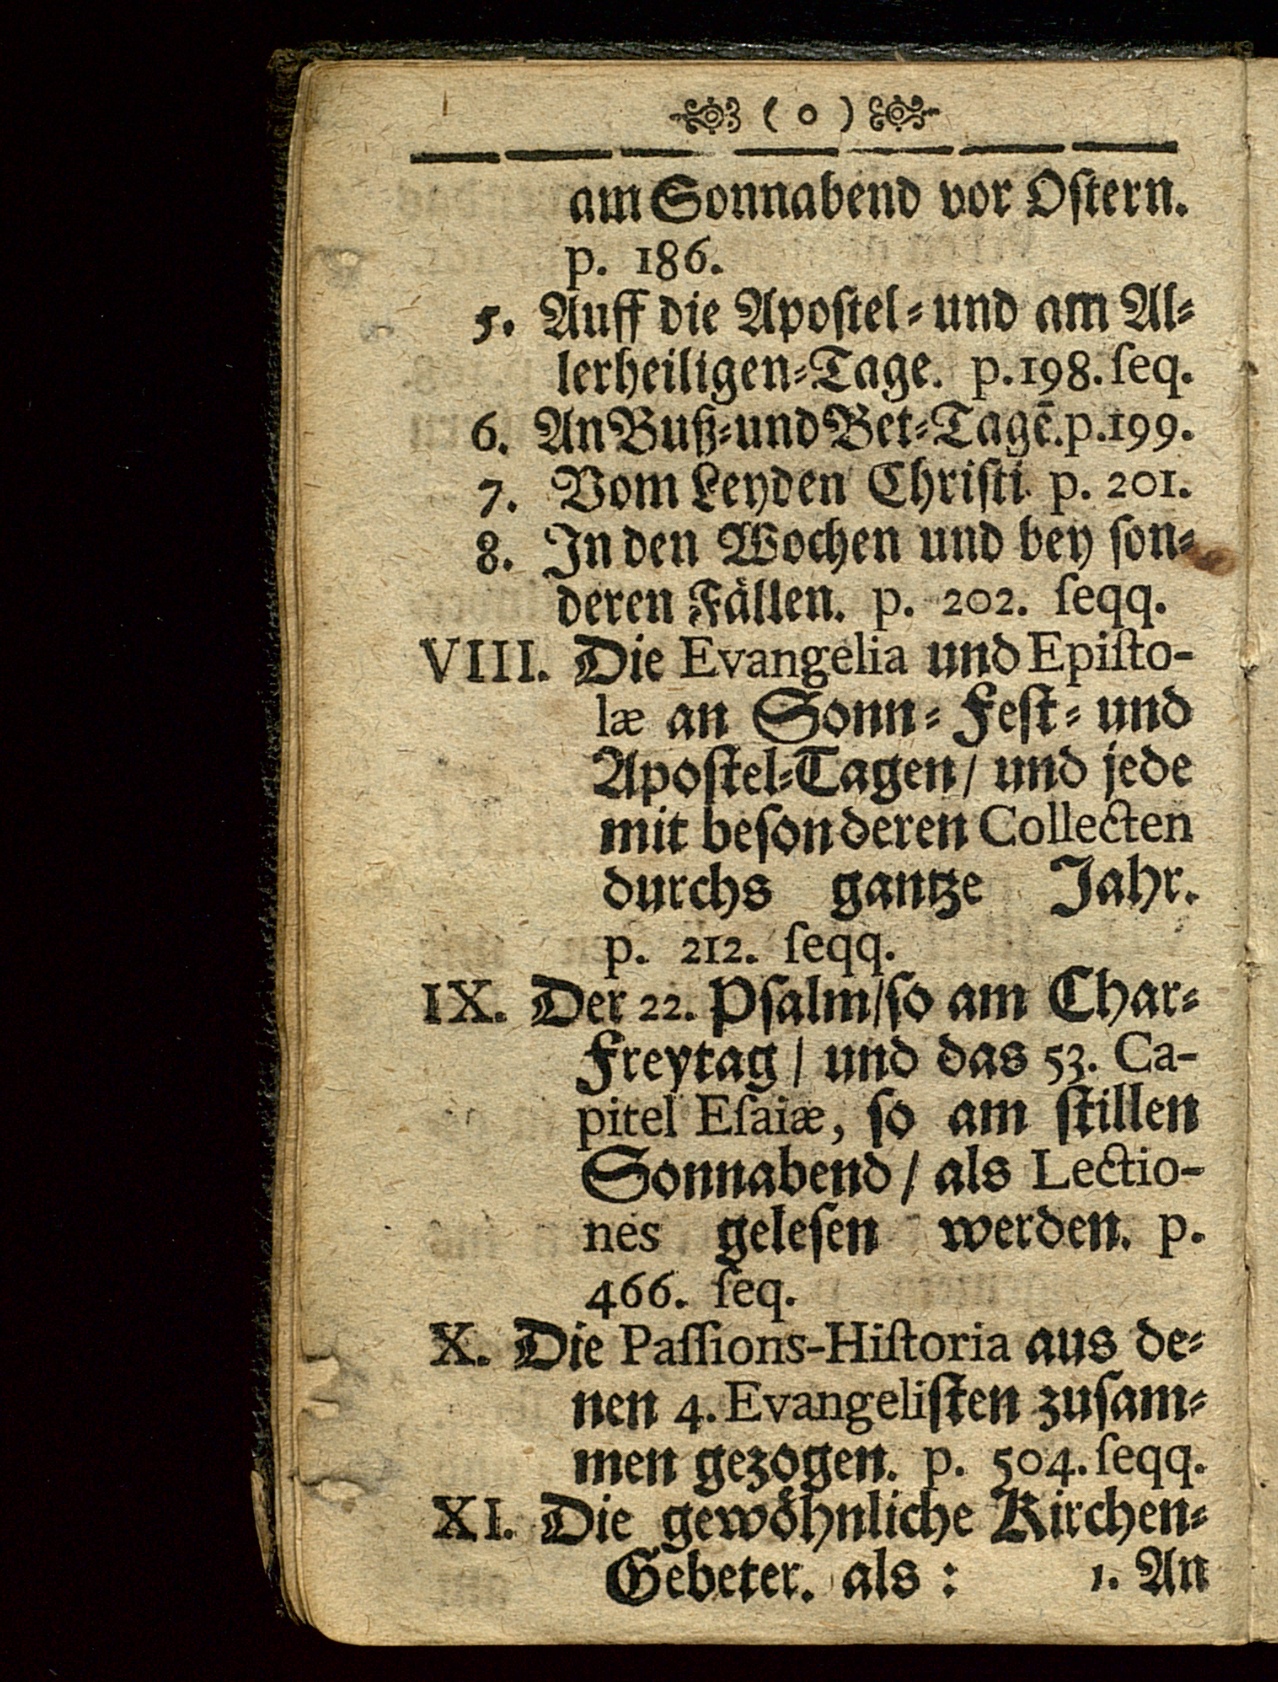 ( o )
am Sonnabend vor Oſtern.
p. 186.
5. Auff die Apoſtel- und am Al-
lerheiligen-Tage. p. 198. ſeq.
6. An Buß- und Bet-Tagē. p. 199.
7. Vom Leyden Chriſti. p. 201.
8. In den Wochen und bey ſon-
deren Fällen. p. 202. ſeqq.
VIII. Die Evangelia und Epiſto-
læ an Sonn- Feſt- und
Apoſtel-Tagen / und jede
mit beſonderen Collecten
durchs gantze Jahr.
p. 212. ſeqq.
IX. Der 22. Pſalm / ſo am Char-
Freytag / und das 53. Ca-
pitel Eſaiæ, ſo am ſtillen
Sonnabend / als Lectio-
nes geleſen werden. p.
466. ſeq.
X. Die Paſſions-Hiſtoria aus de-
nen 4. Evangeliſten zuſam-
men gezogen. p. 504. ſeqq.
XI. Die gewöhnliche Kirchen-
Gebeter. als : 1. An